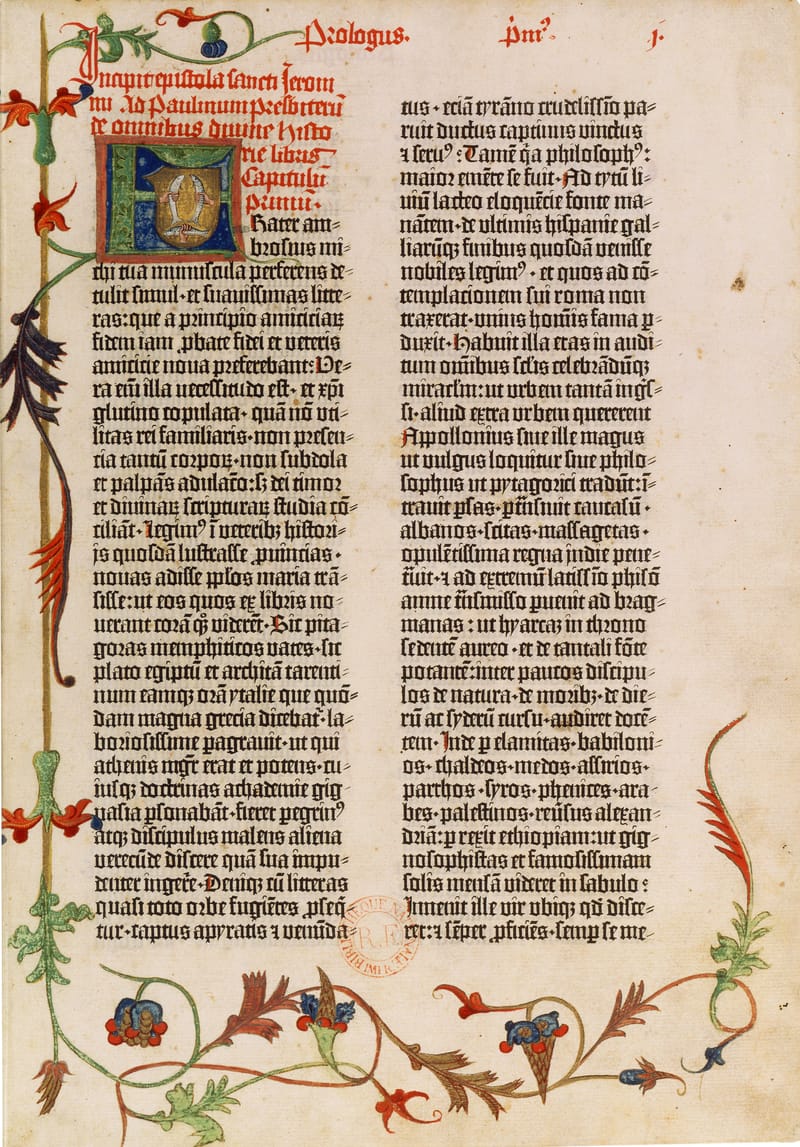 Prologus. p̄mꝰ. j.
Incipit epistola sancti Jeroni
mi ad Paulinum presbiterū
de omnibus diuine histo
rie libris
Capitulū
primū.
Frater am⸗
brosius mi⸗
chi tua munuscula perferens de⸗
tulit simul·et suauissimas litte⸗
ras:que a principio amiciciaꝝ
fidem iam ꝓbate fidei et veteris
amicicie noua preferebant: Ve⸗
ra em̄ illa necessitudo est· et xp̄i
glutino copulata· quā nō vti⸗
litas rei familiaris·non presen⸗
cia tantū corpoꝝ·non subdola
et palpās adulac̄o:sꝫ dei timor
et diuinaꝝ scripturaꝝ studia cō⸗
ciliāt· Legimꝰ ī veteribꝫ histori⸗
js quosdā lustrasse ꝓuincias·
nouas adisse pp̄los maria trā⸗
sisse:ut eos quos ex libris no⸗
uerant corā qꝫ viderēt· Sic pita⸗
goras memphiticos vates· sic
plato egiptū et architā tarenti⸗
num eamqꝫ orā ytalie que quō⸗
dam magna grecia dicebat̄·la⸗
boriosissime ꝑagrauit· ut qui
athenis mgr̄ erat et potens· cu⸗
iusqꝫ doctrinas achademie gig
nasia ꝑsonabāt· fieret ꝑegrinꝰ
atqꝫ discipulus malens aliena
verecūde discere quā sua impu⸗
denter ingere̅· Deniqꝫ cū litteras
quasi toto orbe fugiētes ꝑseq̄⸗
tur· captus a pyratis ⁊ venūda⸗
tus· eciā tyrāno crudelissīo pa⸗
ruit ductus captiuus vinctus
⁊ seruꝰ : Tamē q̄a philosophꝰ:
maior emēte se fuit· Ad tytū li⸗
uiū lacteo eloquēcie fonte ma⸗
nātem· de vltimis hispanie gal⸗
liarūqꝫ finibus quosdā venisse
nobiles legimꝰ· et quos ad cō⸗
templacionem sui roma non
traxerat· vnius hoīs fama ꝑ⸗
duxit· Habuit illa etas in audi⸗
tum om̄ibus sc̄lis celebrādūqꝫ
miraclm̄: ut vrbem tantā ings̄⸗
si·aliud extra vrbem quererent
Appollonius siue ille magus
ut vulgus loquitur siue philo⸗
sophus ut pytagorici tradūt:ī⸗
trauit ꝑsas· ꝑtn̄siuit caucasū·
albanos· scitas· massagetas·
opulētissima regna indie pene⸗
tͬuit· ⁊ ad extremū latissīo phisō
amne tn̄smisso ꝑuenit ad brag⸗
manas : ut hyarcaꝫ in throno
sedentē aureo · et de tantali fōte
potantē:inter paucos discipu⸗
los de natura· de moribꝫ· de die⸗
rū ac syderū cursu· audiret docē⸗
tem· Inde ꝑ elamitas· babiloni⸗
os· chaldeos· medos· assirios·
parthos· syros· phenices· ara⸗
bes· palestinos· reūsus alexan⸗
driā: ꝑrexit ethiopiam: ut gig⸗
nosophistas et famosissimam
solis mensā videret in sabulo :
Inuenit ille vir vbiqꝫ qd̄ disce⸗
ret: ⁊ sēper ꝓficiēs· semꝑ se me⸗
R. F.